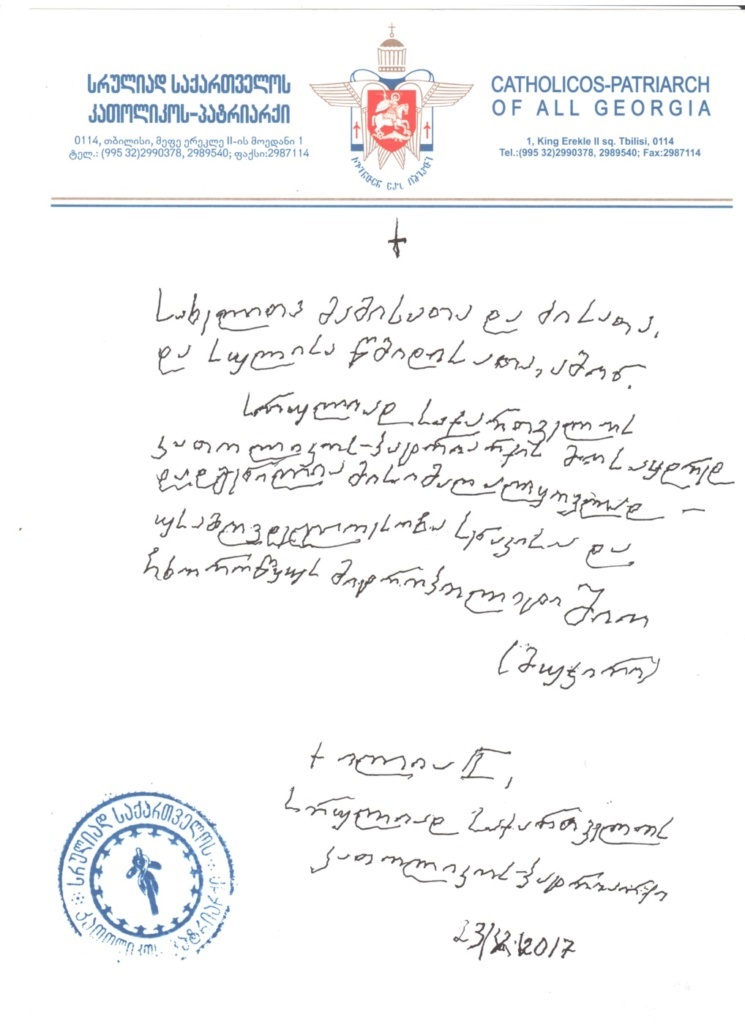 სრულიად საქართველოს
კათოლიკოს-პატრიარქი
0114, თბილისი, მეფე ერეკლე II-ის მოედანი 1
ტელ.: (995 32)2990378, 2989540; ფაქსი:2987114
CATHOLICOS-PATRIARCH
OF ALL GEORGIA
1, King Erekle II sq. Tbilisi, 0114
Tel.:(995 32)2990378, 2989540; Fax:2987114
სახელითა მამისათა და ძისათა,
და სულისა წმიდისათა, ამინ.
სრულიად საქართველოს
კათოლიკოს-პატრიარქის მოსაყდრედ
დადგენილია მისი მაღალყოვლად-
უსამღვდელოესობა სენაკისა და
ჩხოროწყუს მიტროპოლიტი შიო
(მუჯირი)
+ ილია II,
სრულიად საქართველოს
კათოლიკოს-პატრიარქი
2017
სრულიად საქართველოს
კათოლიკოს-პატრიარქი